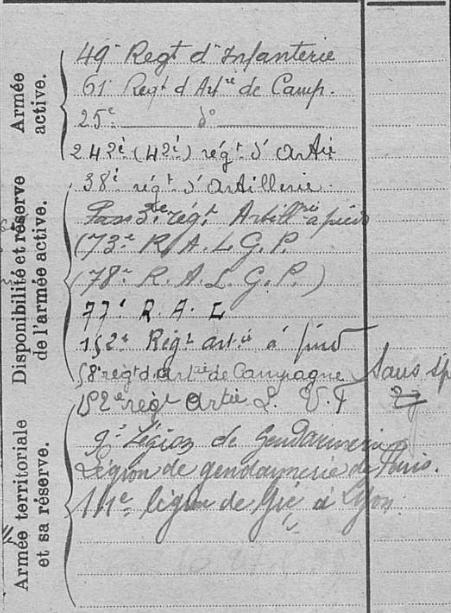 Armée active.
49e Regt d'Infanterie
61e Regt d'Artrie de Camp.
25e d°
242e (42e) régt d'Artie
38e régt d'Artillerie.
Disponibilité et réserve de l'armée active.
régt Artillrie à pied
(73e R.A.L.G.P.
(78e R.A.L.G.P.)
77e R.A.L
152e Régt artie à pied
58e regt d'Artie de Campagne Sans sp
182e regt Artie L. V.F
Armée territoriale et sa réserve.
9e Légion de Gendarmerie
Légion de gendarmerie de Paris.
14e légion de Gie à Lyon.